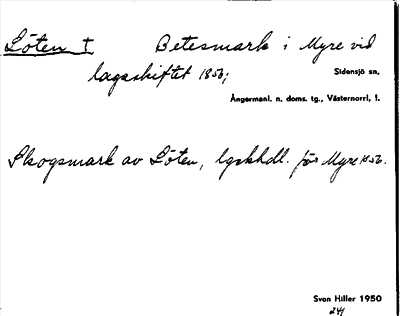 Löten † Betesmark i Myre vid
lagaskiftet 1856;
Sidensjö sn,
Ångermanl. n. doms. tg., Västernorrl. l.
Skogsmark av Löten, lgskhdl. för Myre 1856.
Sven Hiller 1950
241